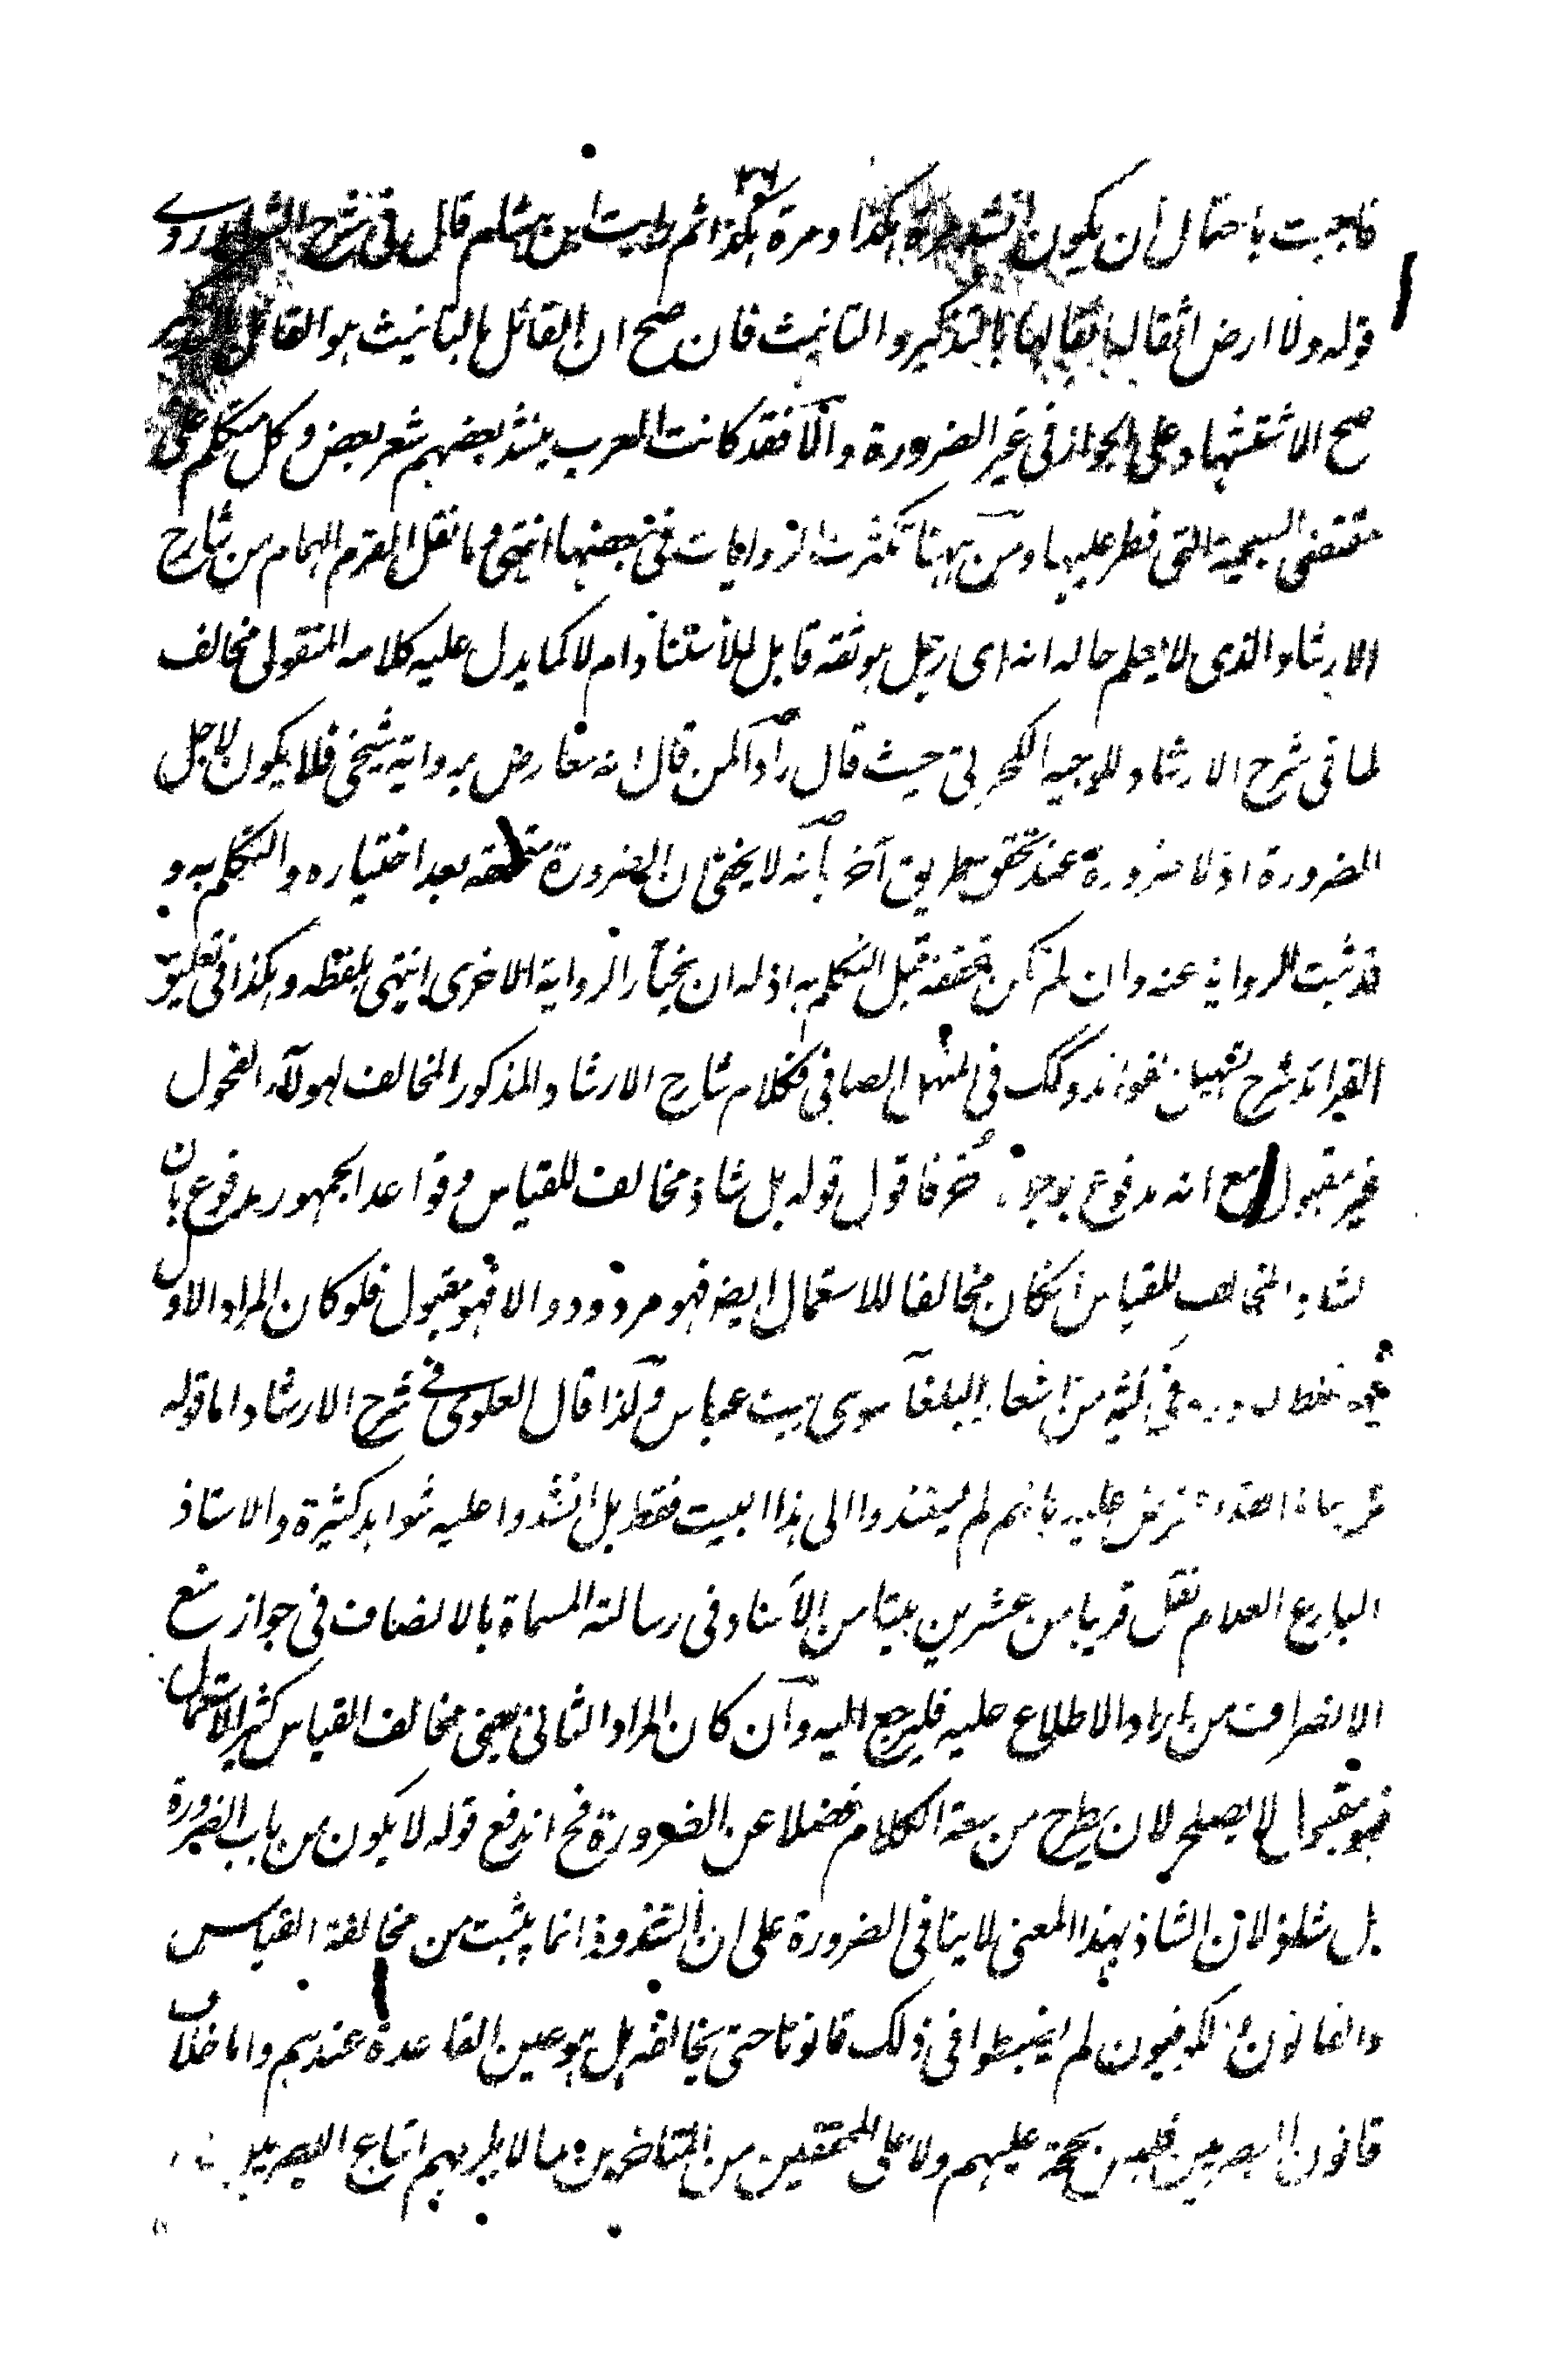 ٣٦
فاجبت باحتمال ان يكون انشد مرة هكذا ومرة هكذا ثم رايت ابن هشام قال فى شرح الشواهد روى
قوله ولا ارض ابقل ابقالها بالتذكير والتانيث فان صح ان القائل بالتانيث هو القائل بالتذكير
صح الاستشهاد على الجواز فى غير الضرورة والا فقد كانت العرب ينشد بعضهم شعر بعض وكل يتكلم على
مقتضى السجية التى فطر عليها ومن ههنا تكثرت الروايات فى بعضها انتهى وما نقل القرم الهمام من شارح
الارشاد الذى لا يعلم حاله انه اى رجل هو ثقة قابل للاستناد ام لا كما يدل عليه كلامه المنقول مخالف
لما فى شرح الارشاد للوجيه الكجراتى حيث قال رادا لمن قال انه معارض برواية شيخى فلا يكون لاجل
الضرورة اذ لا ضرورة عند تحقق طريق آخر بانه لا يخفى ان الضرورة متحققة بعد اختياره والتكلم به و
قد ثبت الرواية عنه وان لم تكن متحققة قبل التكلم به اذ له ان يختار الرواية الاخرى انتهى بلفظه وهكذا فى تعليق
الفرائد شرح تسهيل الفوائد وكذلك فى المنهل الصافى فكلام شارح الارشاد المذكور المخالف لهولاء الفحول
غير مقبول مع انه مدفوع بوجوه اخر فاقول قوله بل شاذ مخالف للقياس وقواعد الجمهور مدفوع بان
الشاذ المخالف للقياس انكان مخالفا للاستعمال ايضا فهو مردود والا فهو مقبول فلو كان المراد الاول
فى كثير من اشعار البلغاء سوى بيت عباس ولذا قال العلوى فى شرح الارشاد اما قوله
عليه بانهم لم يستندوا الى هذا البيت فقط بل انشدوا عليه شواهد كثيرة والاستاذ
البارع العلام نقل قريبا من عشرين بيتا من الاسناد فى رسالته المسماة بالانصاف فى جواز منع
الانصراف من اراد الاطلاع عليه فليرجع اليه وان كان المراد الثانى يعنى مخالف القياس كثير الاستعمال
فهو مقبول لا يصلح لان يطرح من سعة الكلام فضلا عن الضرورة فح اندفع قوله لا يكون من باب الضرورة
بل شاذ لان الشاذ بهذا المعنى لا ينافى الضرورة على ان الشذوذ انما يثبت من مخالفة القياس
والقانون والكوفيون لم يضبطوا فى ذلك قانونا حتى يخالفه بل هو عين القاعدة عندهم واما خلاف
قانون البصريين فليس بحجة عليهم ولا على المحققين من المتاخرين ما لا يلزمهم اتباع البصريين